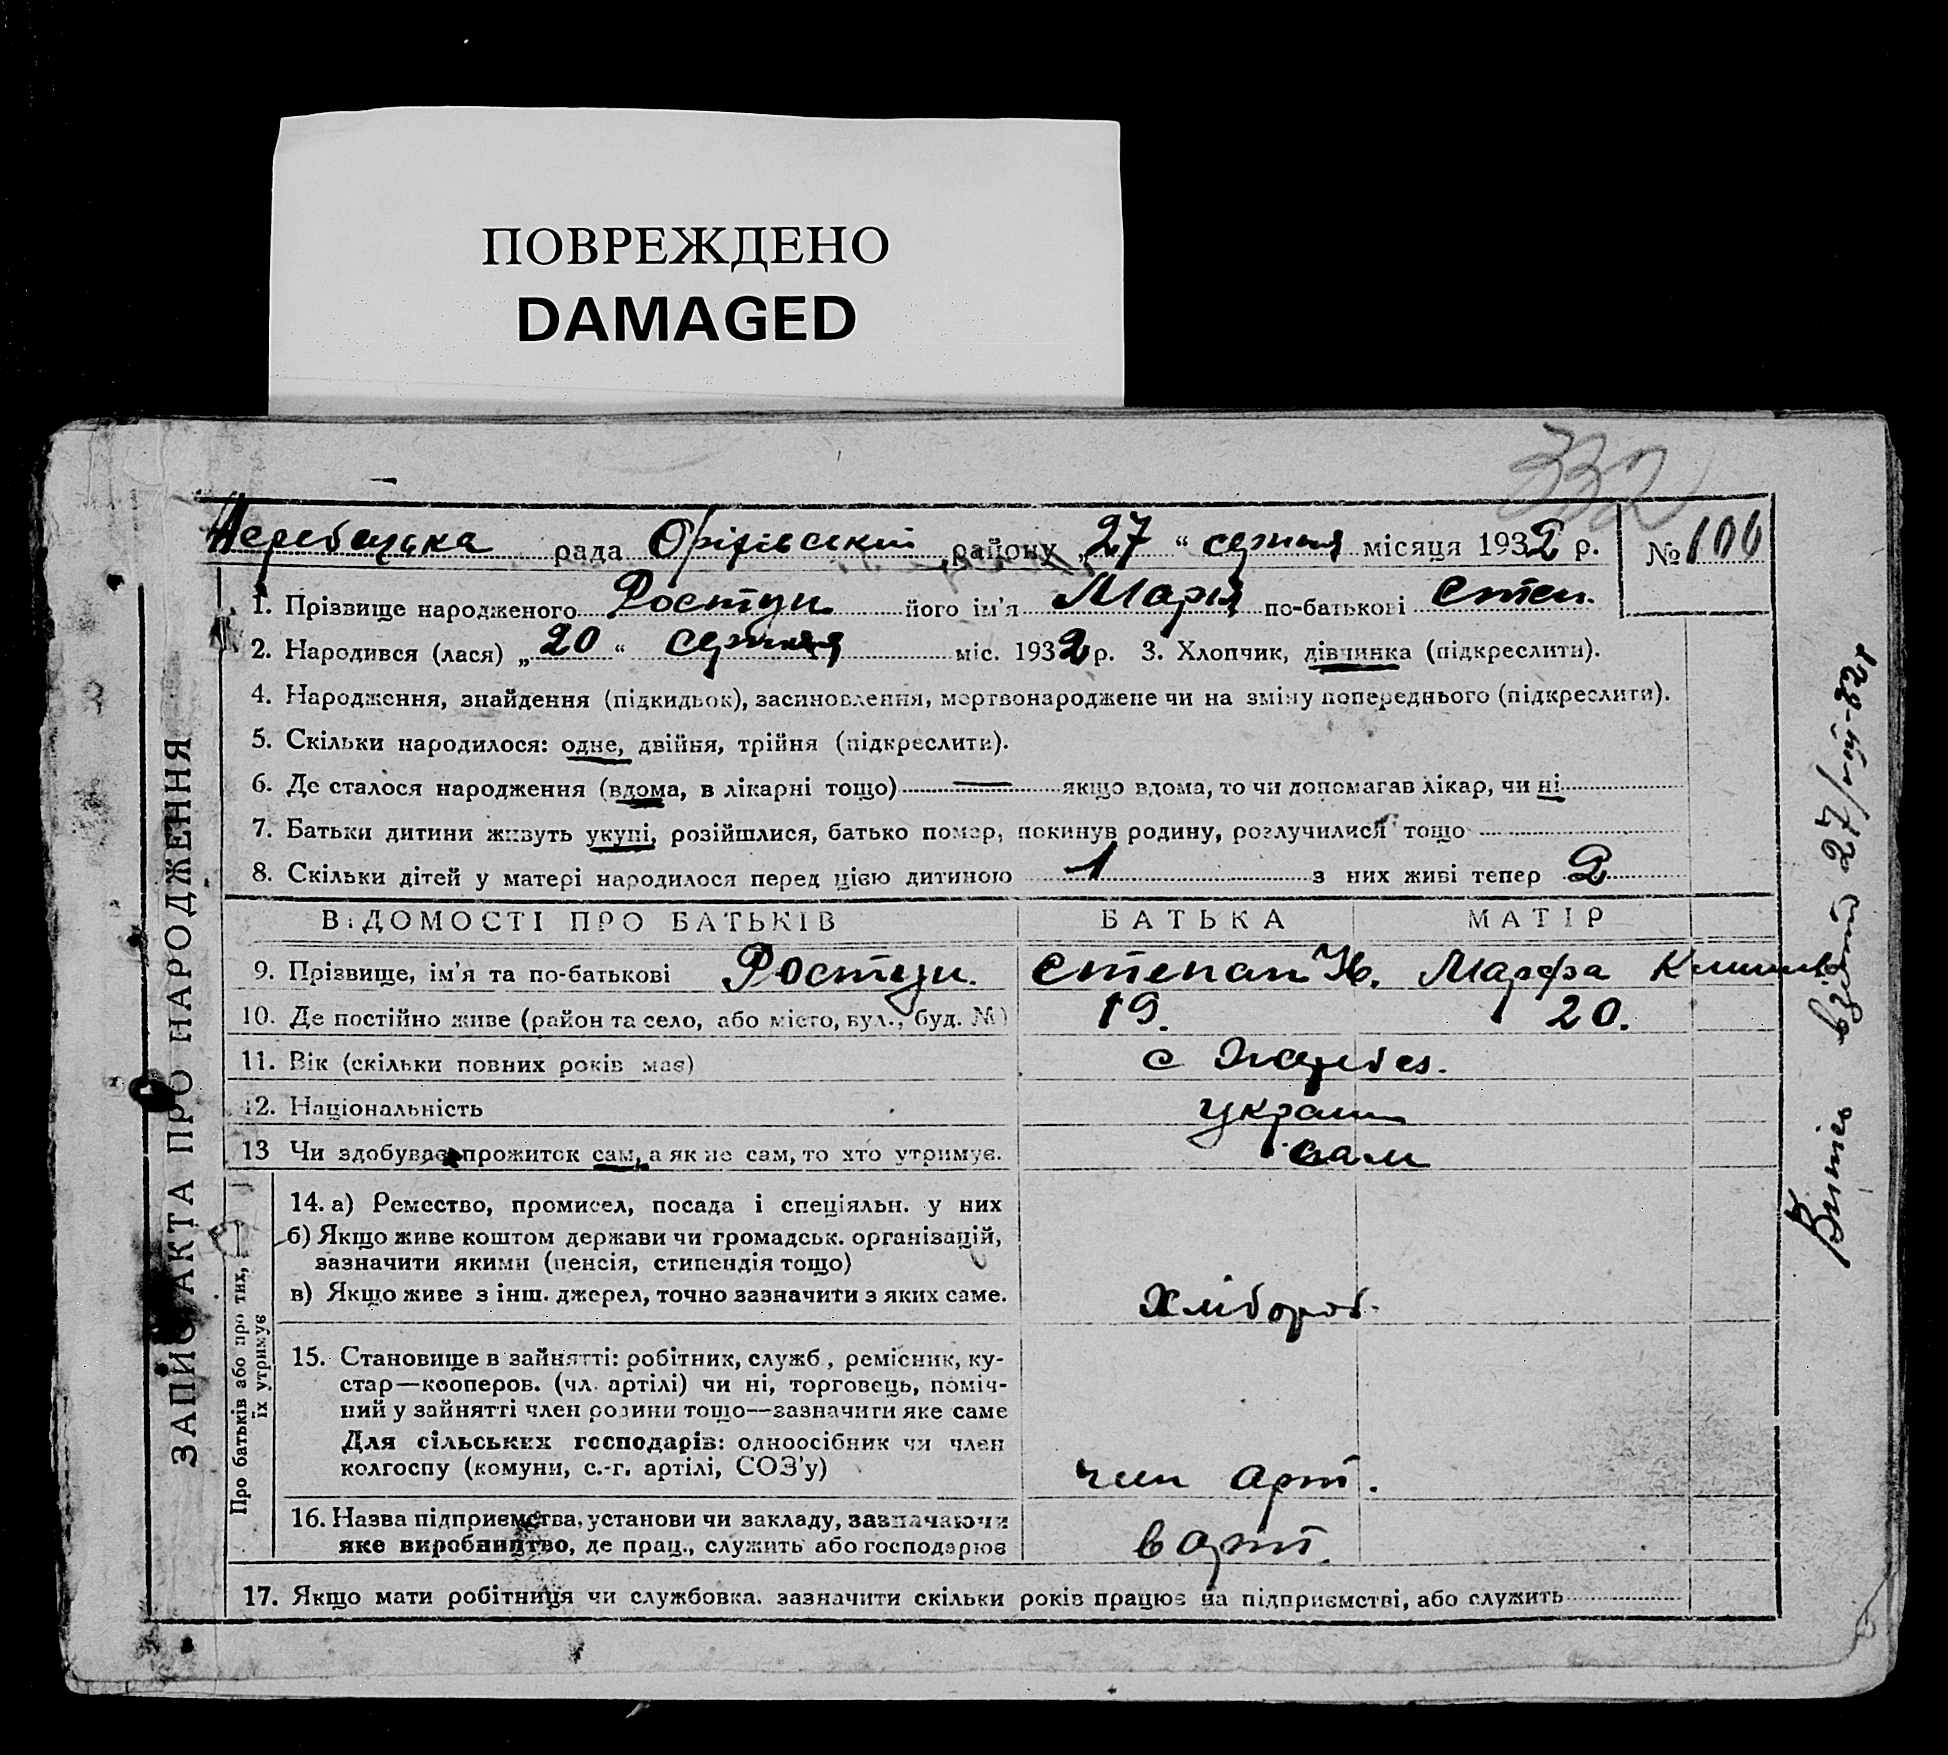 ПОВРЕЖДЕНО
DAMAGED
332
Жеребецька рада Оріхівський району „27“ серпня місяця 1932 р. № 106
1. Прізвище народженого Ростун його ім’я Марія по-батькові Степ.
2. Народився (лася) „20“ серпня міс. 1932 р. 3. Хлопчик, дівчинка (підкреслити).
4. Народження, знайдення (підкидьок), засиновлення, мертвонароджене чи на зміну попереднього (підкреслити).
5. Скільки народилося: одне, двійня, трійня (підкреслити).
6. Де сталося народження (вдома, в лікарні тощо) — якщо вдома, то чи допомагав лікар, чи ні
7. Батьки дитини живуть укупі, розійшлися, батько помер, покинув родину, розлучилися тощо
8. Скільки дітей у матері народилося перед цією дитиною 1 з них живі тепер 2
ВІДОМОСТІ ПРО БАТЬКІВ БАТЬКА МАТІР
9. Прізвище, ім’я та по-батькові Ростун. Степан Марфа
10. Де постійно живе (район та село, або місто, вул., буд. №) 19. 20.
11. Вік (скільки повних років має) с Жеребец.
12. Національність украин
13 Чи здобуває прожиток сам, а як не сам, то хто утримує. сам
Про батьків або про тих, — їх утримує
14. а) Ремество, промисел, посада і спеціяльн. у них
б) Якщо живе коштом держави чи громадськ. організацій,
зазначити якими (пенсія, стипендія тощо)
в) Якщо живе з інш. джерел, точно зазначити з яких саме. Хлібороб.
15. Становище в зайнятті: робітник, служб., ремісник, ку-
стар—кооперов. (чл. артілі) чи ні, торговець, поміч-
ний у зайнятті член родини тощо—зазначити яке саме
Для сільських господарів: одноосібник чи член
колгоспу (комуни, с.-г. артілі, СОЗ’у) член арт.
16. Назва підприємства, установи чи закладу, зазначаючи
яке виробництво, де прац., служить або господарює в арт.
17. Якщо мати робітниця чи службовка, зазначити скільки років працює на підприємстві, або служить
ЗАПИС АКТА ПРО НАРОДЖЕННЯ
Витяг взятий 27/VIII-32р